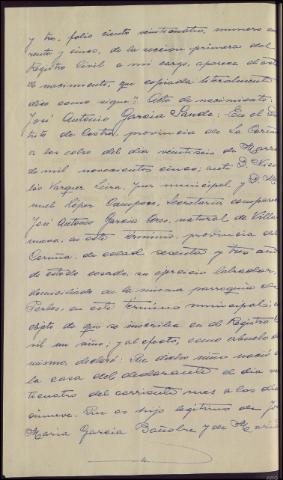 y tres, folio ciento veinticuatro, numero cua
renta y cinco, de la seccion primera del
Registro Civil a mi cargo, aparece el acta
de nacimiento, que copiada literalmente
dice como sigue: Acta de nacimiento:
José Antonio Garcia Pardo: En el
de provincia de La Coruña
a las doce del dia veintiseis de Marzo
de mil novecientos cinco, ante D.
lio Vazquez Leira, Juez municipal y D. Ma
nuel López Campos, Secretario compare
José Antonio Garcia natural de Villa
nueva, en este término, provincia de
Coruña, de edad sesenta y tres años
de estado casado, su ejercicio labrador,
domiciliado de la misma parroquia de
en este término municipal,
objeto de que se inscriba en el Registro Ci
vil un niño; y al efecto, como abuelo del
mismo, declaró: Que dicho niño nació en
la casa del declarante el dia vein
ticuatro del corriente mes a las diez
Que es hijo legitimo de José
Maria Garcia Bañobre y de Maria